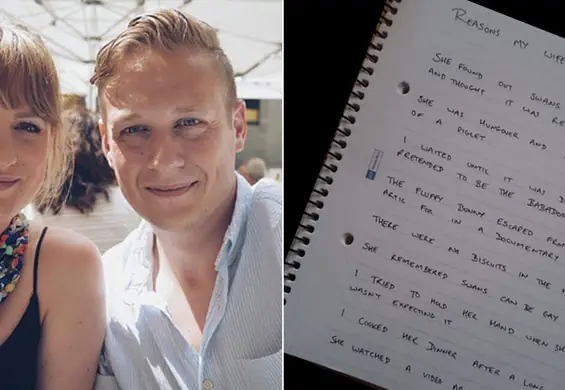 REASONS MY WIFE
SHE FOUND OUT SWANS
AND THOUGHT IT WAS
SHE WAS HUNGOVER AND
OF A PIGLET
I WAITED UNTIL IT WAS
PRETENDED TO BE THE BABADOO
THE FLUFFY BUNNY ESCAPED FROM
ARTIC FOX IN A DOCUMENTARY
THERE WERE NO BISCUITS IN THE
SHE REMEMBERED SWANS CAN BE GAY
I TRIED TO HOLD HER HAND WHEN
WASN'T EXPECTING IT
I COOKED HER DINNER AFTER A LONG
SHE WATCHED A VIDEO